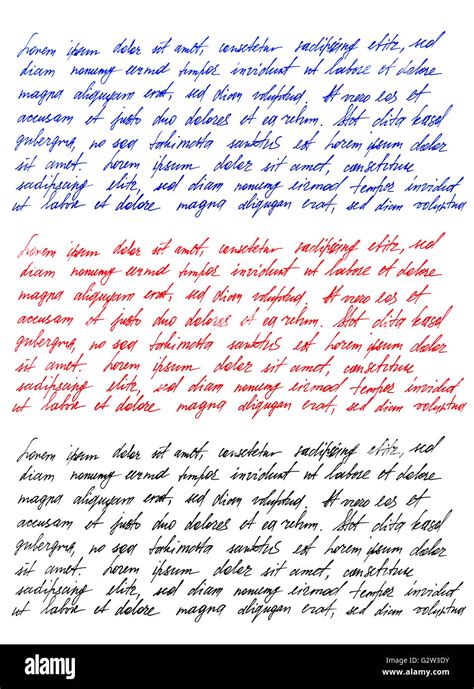 Lorem ipsum dolor sit amet, consetetur sadipscing elitr, sed
diam nonumy eirmod tempor invidunt ut labore et dolore
magna aliquyam erat, sed diam voluptua. At vero eos et
accusam et justo duo dolores et ea rebum. Stet clita kasd
gubergren, no sea takimata sanctus est Lorem ipsum dolor
sit amet. Lorem ipsum dolor sit amet, consetetur
sadipscing elitr, sed diam nonumy eirmod tempor invidunt
ut labore et dolore magna aliquyam erat, sed diam voluptua
Lorem ipsum dolor sit amet, consetetur sadipscing elitr, sed
diam nonumy eirmod tempor invidunt ut labore et dolore
magna aliquyam erat, sed diam voluptua. At vero eos et
accusam et justo duo dolores et ea rebum. Stet clita kasd
gubergren, no sea takimata sanctus est Lorem ipsum dolor
sit amet. Lorem ipsum dolor sit amet, consetetur
sadipscing elitr, sed diam nonumy eirmod tempor invidunt
ut labore et dolore magna aliquyam erat, sed diam voluptua
Lorem ipsum dolor sit amet, consetetur sadipscing elitr, sed
diam nonumy eirmod tempor invidunt ut labore et dolore
magna aliquyam erat, sed diam voluptua. At vero eos et
accusam et justo duo dolores et ea rebum. Stet clita kasd
gubergren, no sea takimata sanctus est Lorem ipsum dolor
sit amet. Lorem ipsum dolor sit amet, consetetur
sadipscing elitr, sed diam nonumy eirmod tempor invidunt
ut labore et dolore magna aliquyam erat, sed diam voluptua
alamy
Image ID: G2W3DY
www.alamy.com